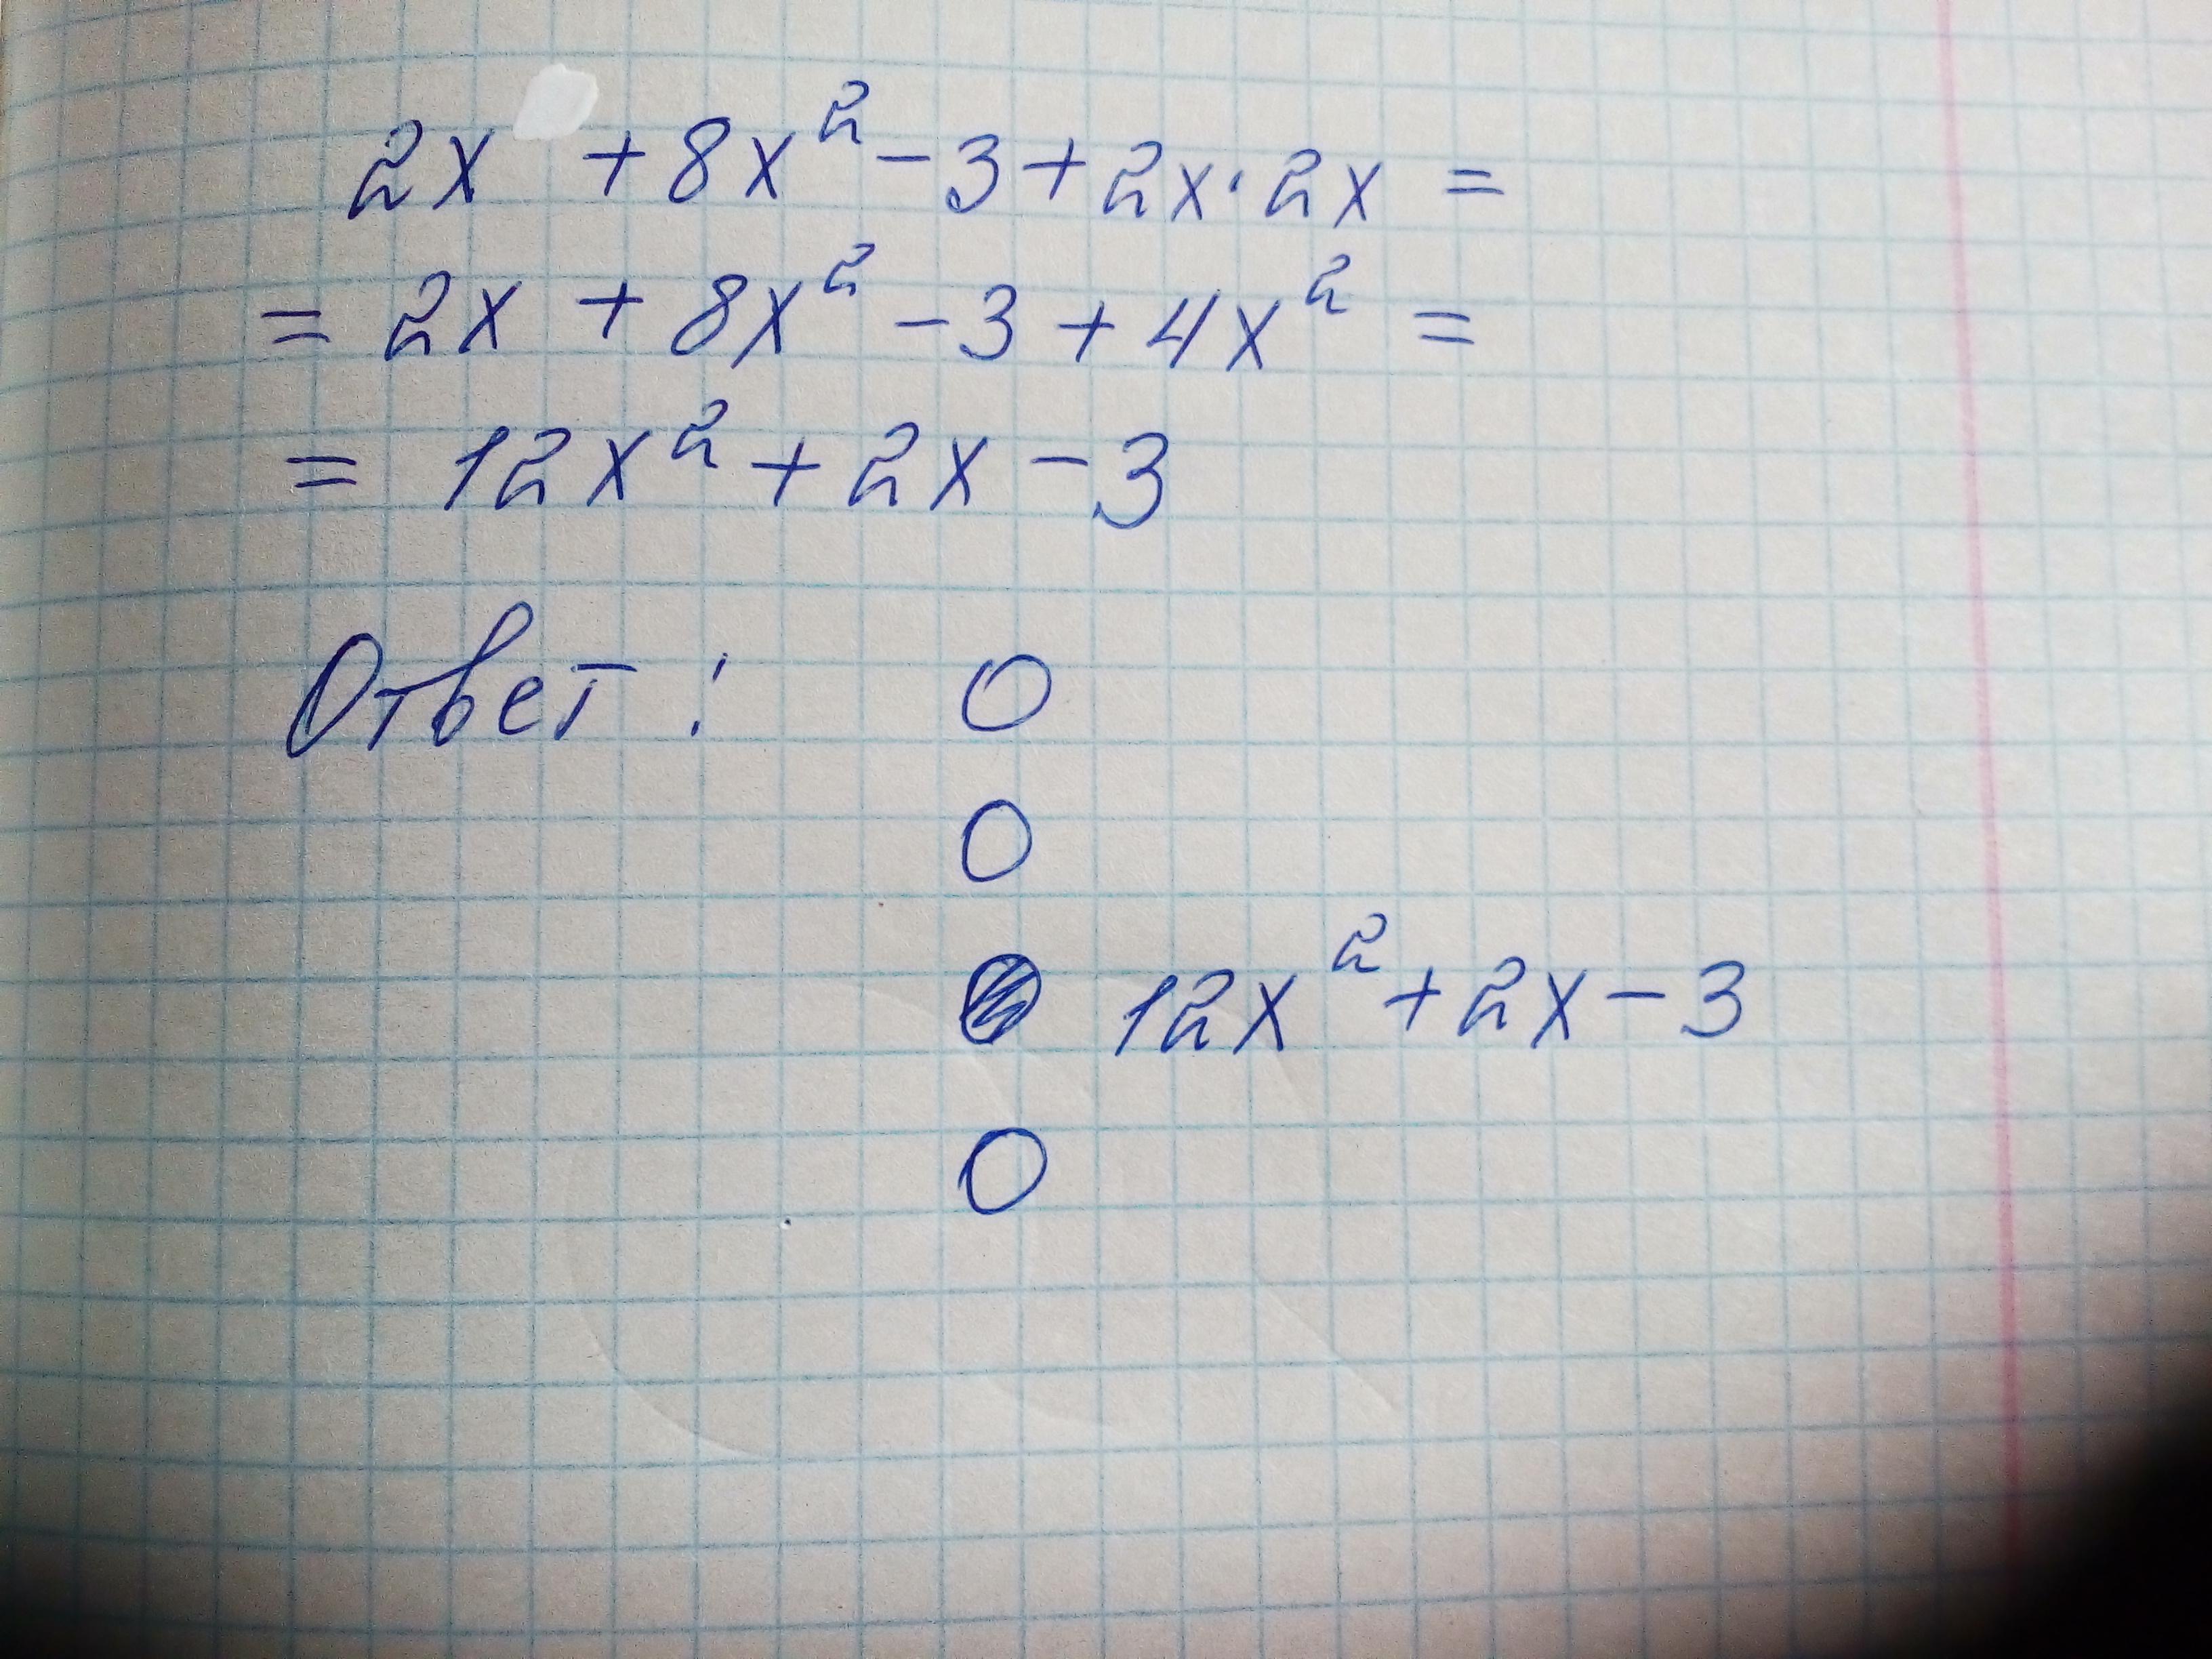 2x + 8x² - 3 + 2x · 2x =
= 2x + 8x² - 3 + 4x² =
= 12x² + 2x - 3
Ответ:
12x² + 2x - 3